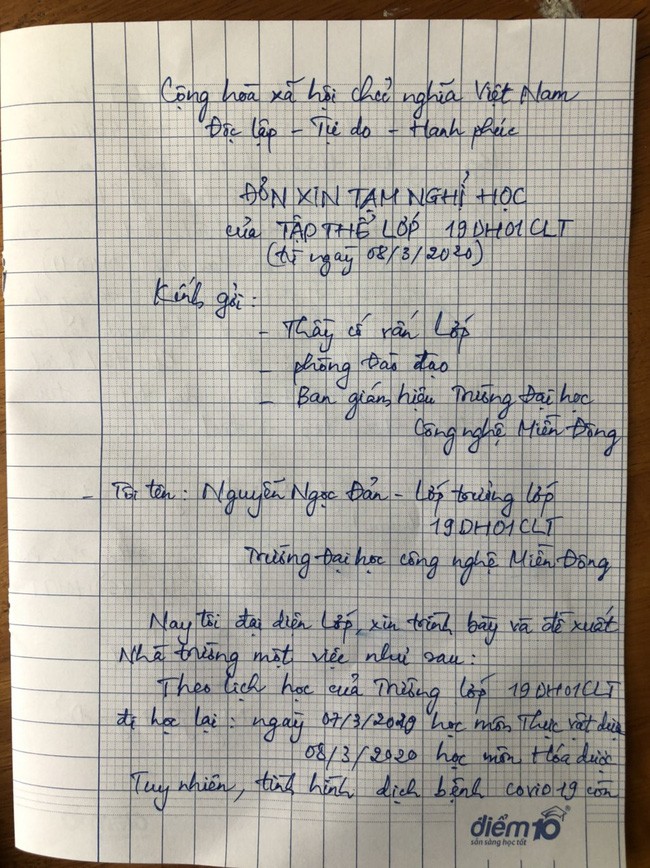 Cộng hòa xã hội chủ nghĩa Việt Nam
Độc lập - Tự do - Hạnh phúc
ĐƠN XIN TẠM NGHỈ HỌC
của TẬP THỂ LỚP 19DH01CLT
(từ ngày 08/3/2020)
Kính gởi:
- Thầy cố vấn Lớp
- phòng Đào đạo
- Ban giám hiệu Trường Đại học
Công nghệ Miền Đông
- Tôi tên: Nguyễn Ngọc Đản - Lớp trưởng lớp
19DH01CLT
Trường Đại học công nghệ Miền Đông
Nay tôi đại diện Lớp, xin trình bày và đề xuất
Nhà trường một việc như sau:
Theo lịch học của Trường lớp 19DH01CLT
đi học lại: ngày 07/3/2020 học môn Thực vật dược
08/3/2020 học môn Hóa dược
Tuy nhiên, tình hình dịch bệnh covid 19 còn
điểm 10
sẵn sàng học tốt